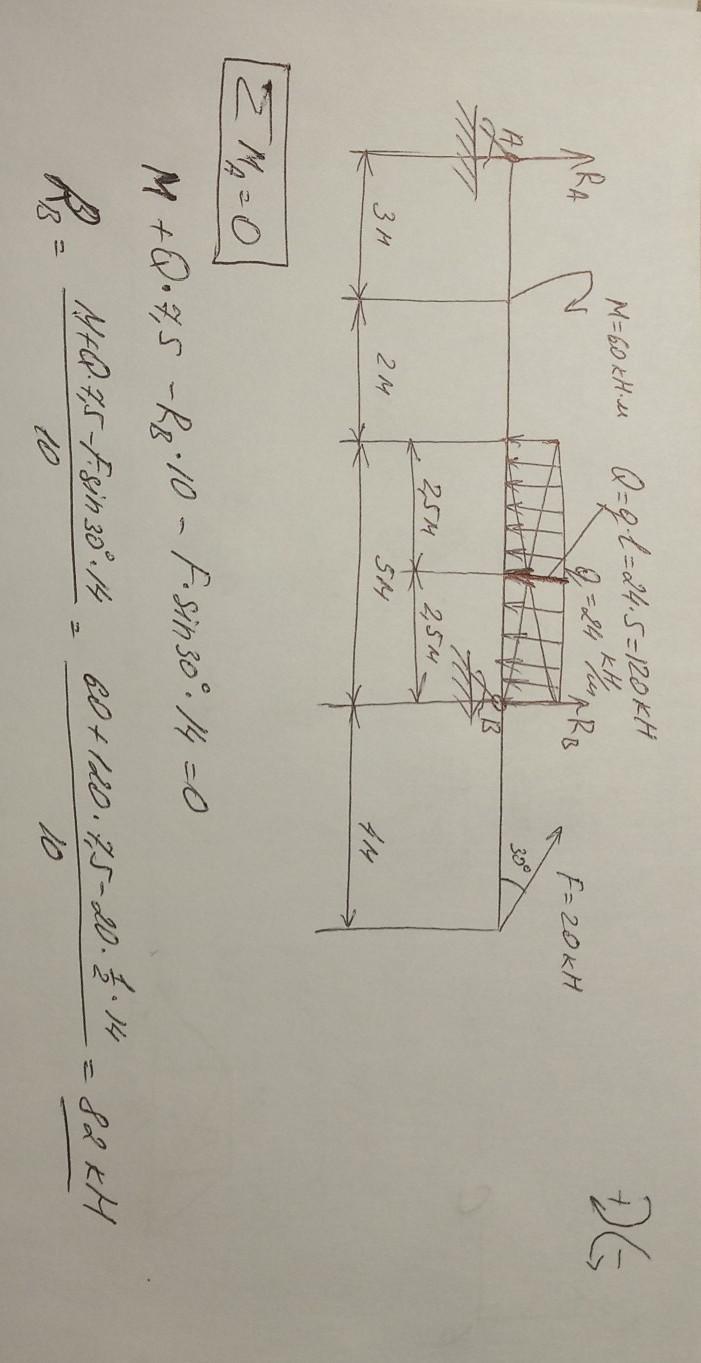 M=60кН·м
Q=q·l=24·5=120кН
q=24 кН/м
RA
RB
F=20кН
30°
A
B
2,5м 2,5м
3м 2м 5м 4м
+ −
ΣMA=0
M+Q·7,5−RB·10−F·sin30°·14=0
RB= M+Q·7,5−F·sin30°·14 / 10 = 60+120·7,5−20·1/2·14 / 10 = 82 кН